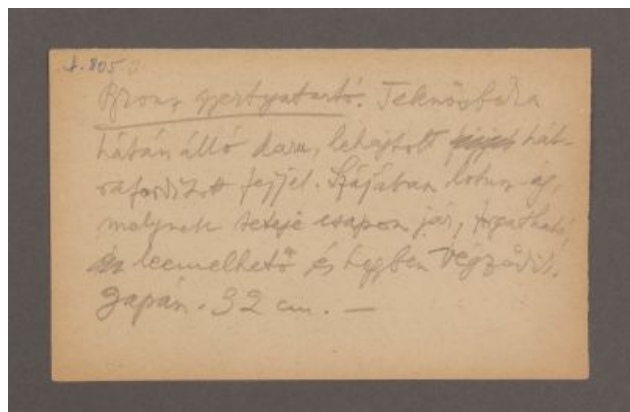 A. 805
Bronz gyertyatartó. Teknősbéka
hátán álló daru, lehajtott hát-
rafordított fejjel. Szájában lotusz ág,
melynek teteje csapon jár, forgatható,
leemelhető és hegyben végződik.
Japán. 32 cm. —